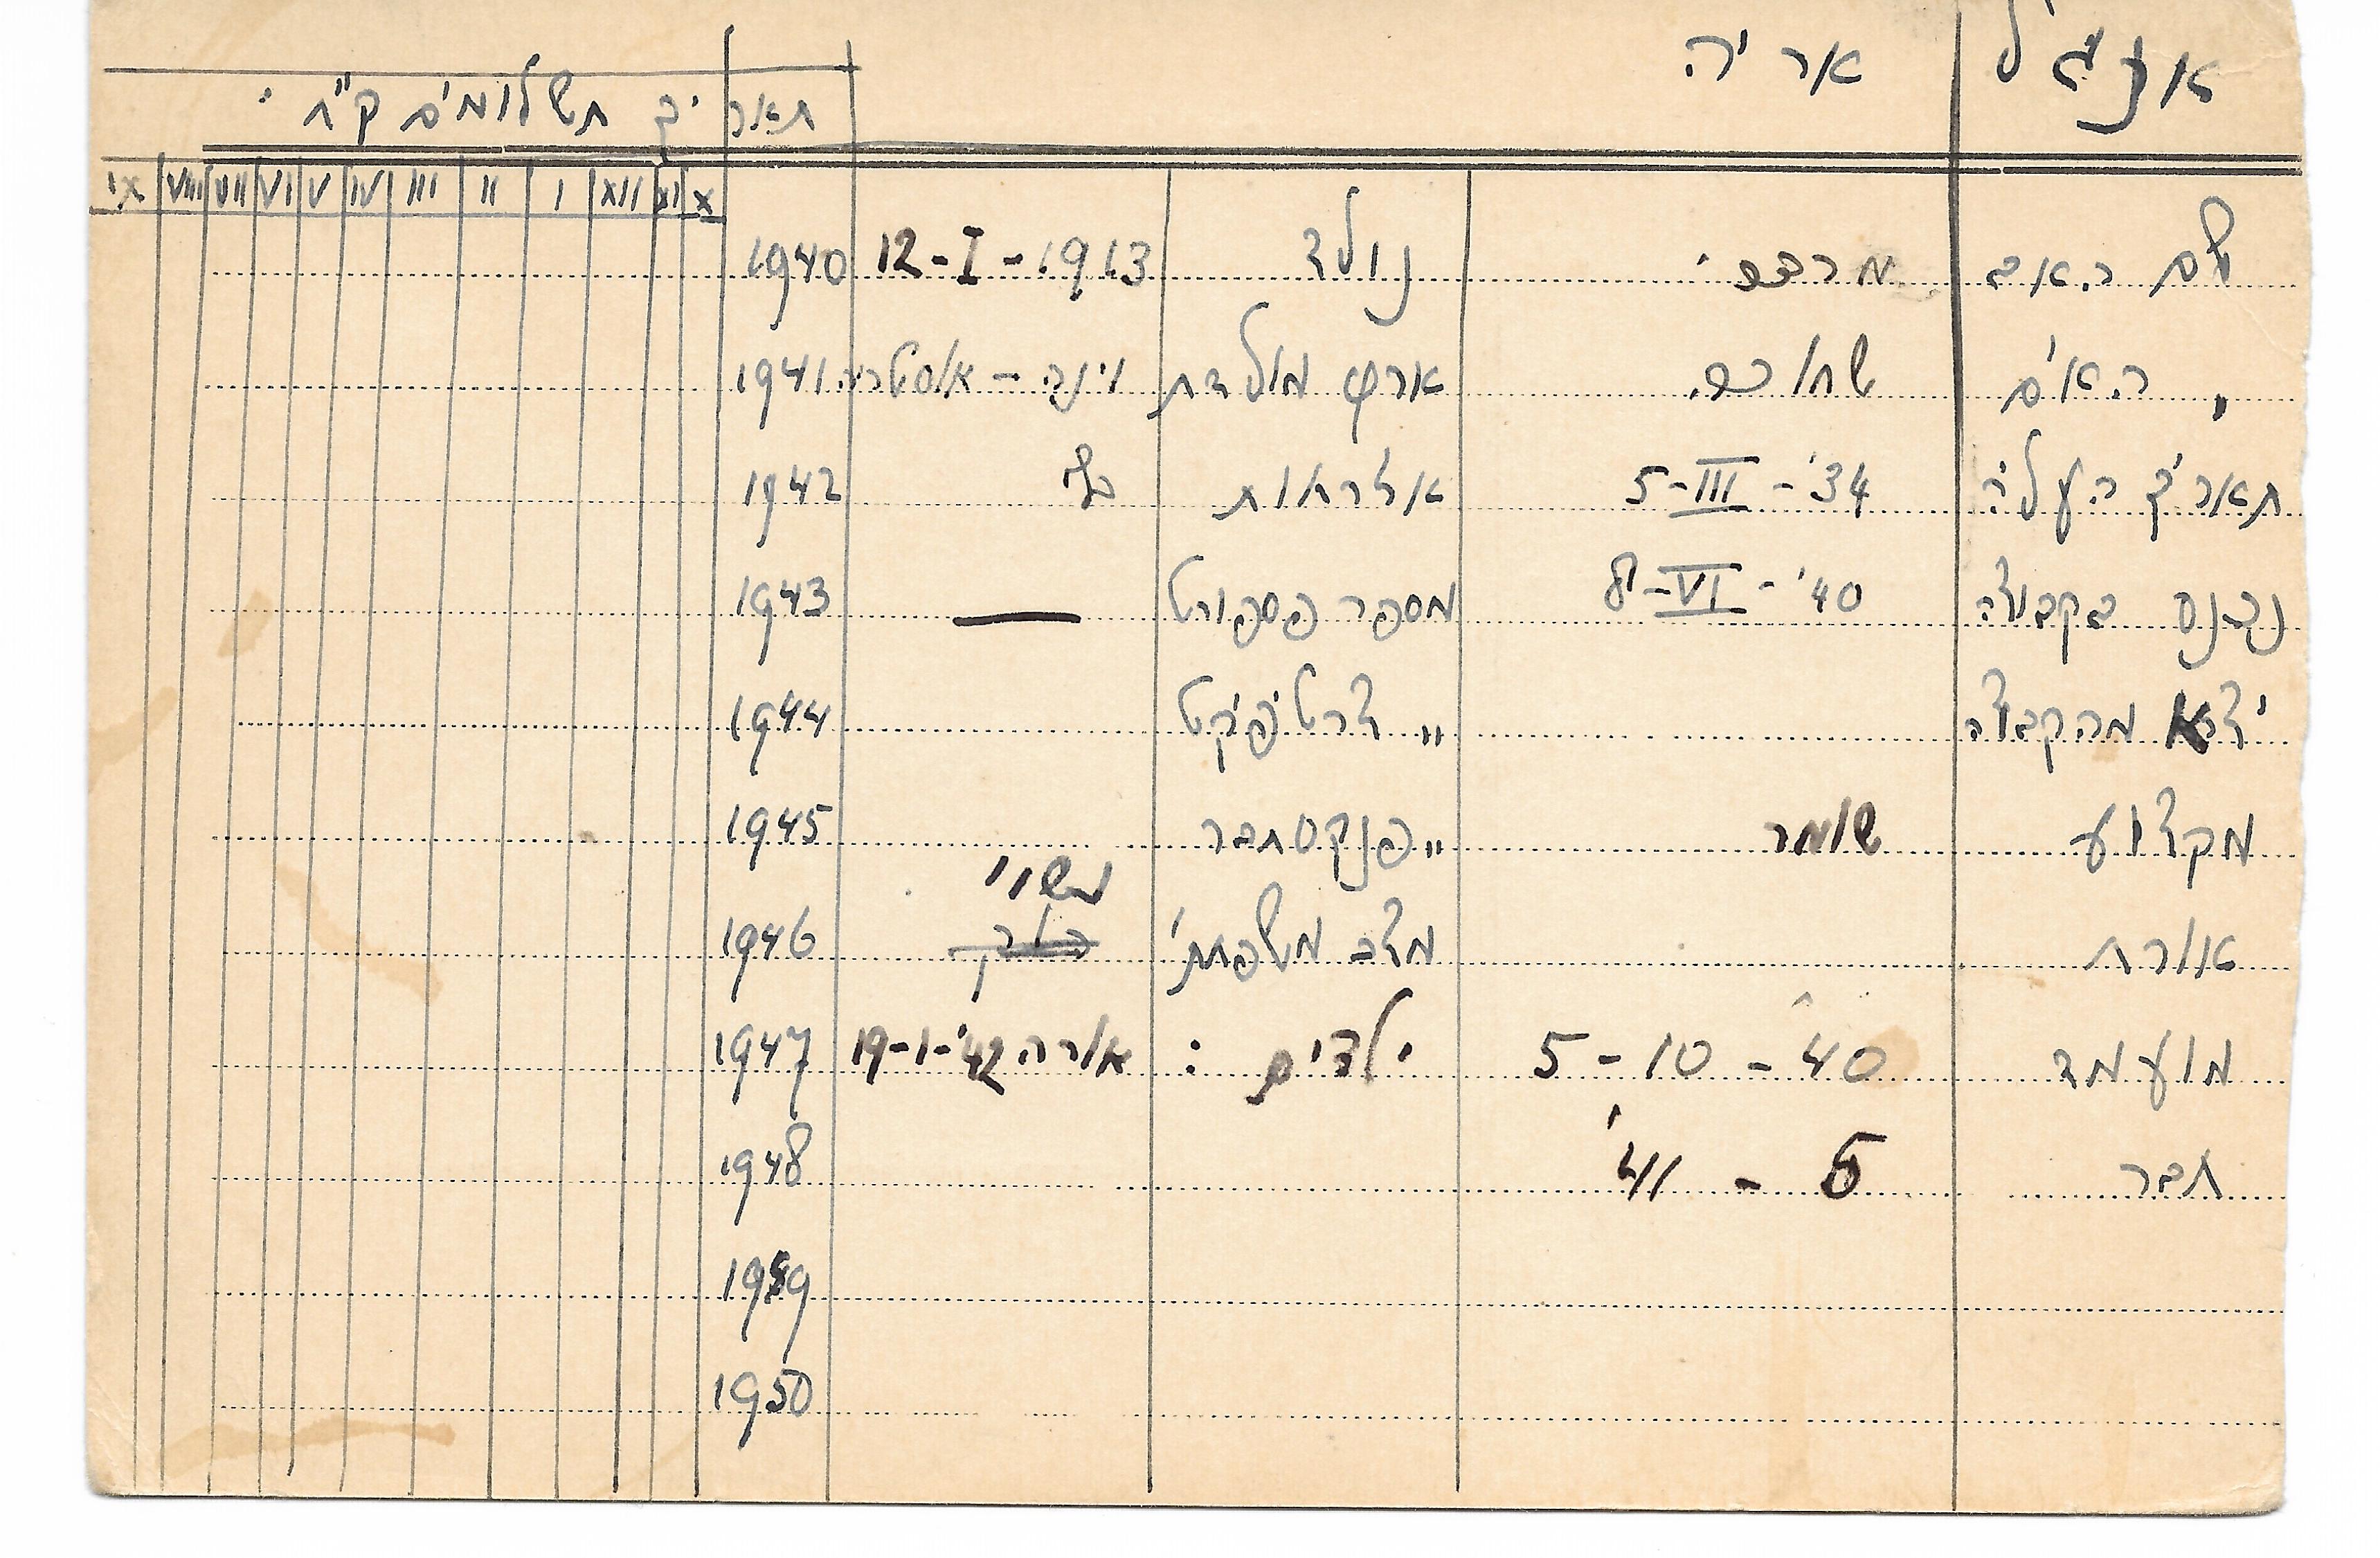 אנג'ל אריה
תאריך תשלומים ק"ח:
X XI XII I II III IV V VI VII VIII XI
שם האב מרכס נולד 12-I-1913 1940
" האים ארץ מולדת וינה - אוסטריה 1941
תאריך העליה 5-III-'34 אזרחות 1942
נכנס בקבוצה 8-VI-'40 מספר פספורט — 1943
יצא מהקבוצה " צרטיפיקט 1944
מקצוע שומר " פנקס חבר 1945
נשוי
אורח מצב משפחתי רווק 1946
מועמד 5-10-40 ילדים: אורה 19-1-'42 1947
חבר 5 - '41 1948
1949
1950